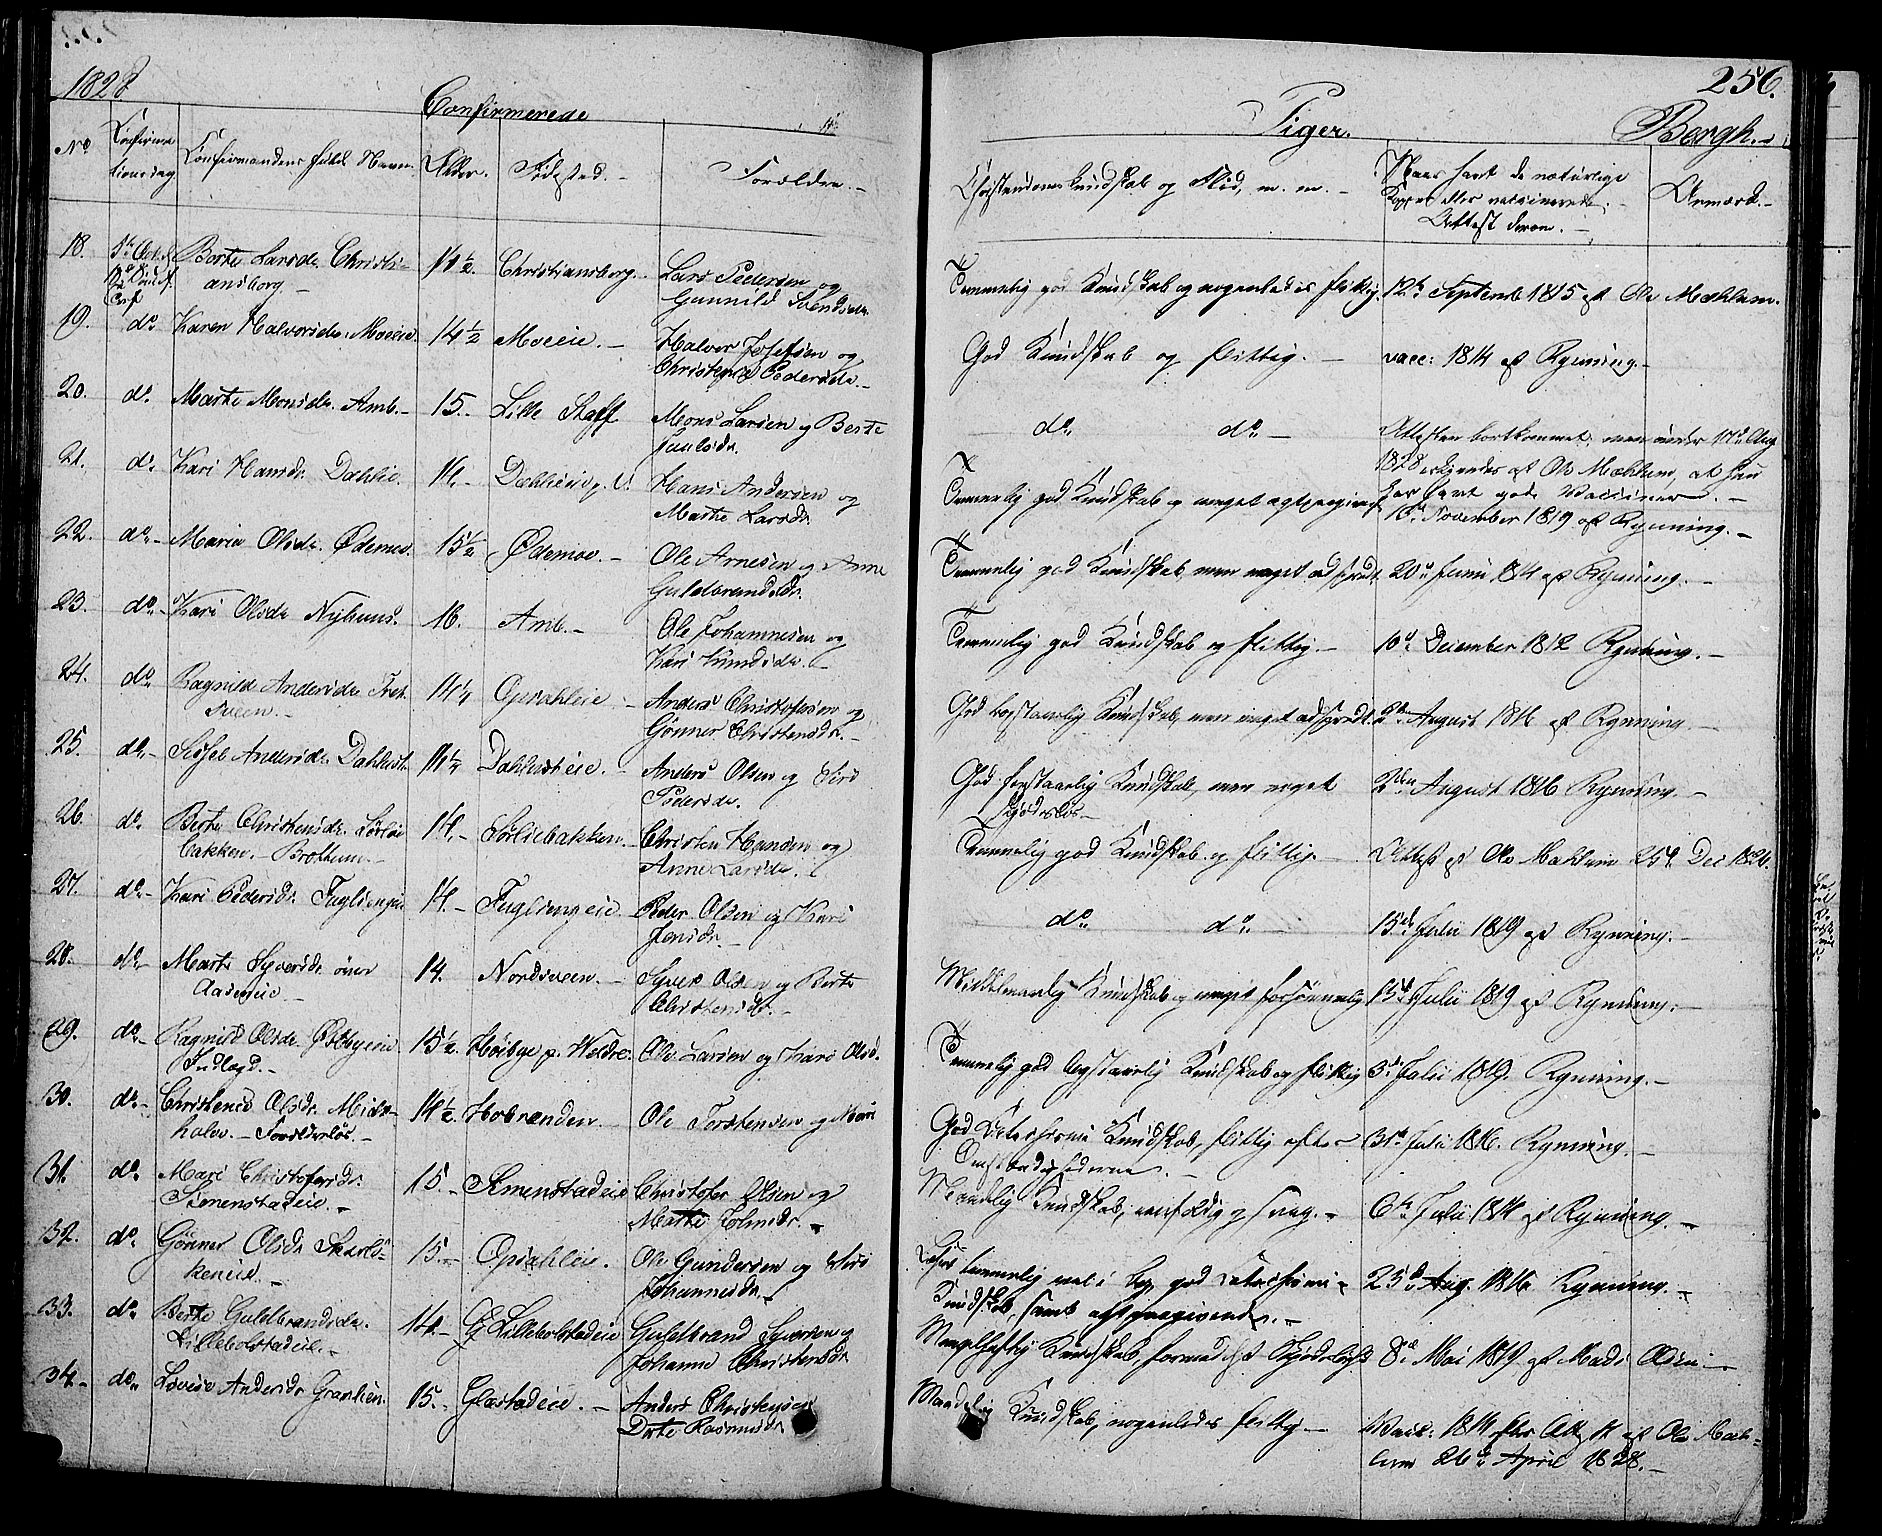 1828
Confirmerede
Piger.
256.
Bergh.
No
Confirmandens fulde Navn.
Alder.
Fødested.
Forældre.
Christendoms Kundskab og Flid, m. m.
Naar havt de naturlige
Kopper eller vaccinerede.
Attest derom.
Anmærk.
18.
Berte Larsdr. Christi-
ansborg.
14½.
Christiansborg.
Lars Pedersen og
Gunnild Svendsdr.
Temmelig god Kundskab og nogenledes flittig.
12te Septemb 1815 af Ole Mæhlum.
19.
do
Karen Halvorsdr. Moeie.
14½
Moeeie.
Halvor Josefsen og
Pedersdr.
God Kundskab og flittig.
vacc: 1814 af Rynning.
20.
do.
Marte Monsdr. Amb.
15.
Lille Staff
Mons Larsen og Berte
Paulsdr.
do. do.
Attesten bortkommet, men under 17de Aug
1828 erkjendes af Ole Mæhlum, at hun
har havt gode Vacciner.
21.
do
Kari Hansdr. Dahlie.
14.
Hans Andersen og
Marte Larsdr.
Temmelig god Kundskab og meget agtpaagivende
November 1819 af Rynning.
22.
do.
Maria Olsdr. Ødemoe.
15½
Ødemoe.
Ole Arnesen og Anne
Guldbrandsdr.
Temmelig god Kundskab men meget adspredt.
20de Junii 1814 af Rynning.
23.
do.
Kari Olsdr Nyhuus.
16.
Amb.
Ole Johannesen og
Kari
Temmelig god Kundskab og flittig.
10de December 1812 Rynning.
24.
do
Ragnild Andersdr.
sveen.
14½
Opsahleie
Anders Christofersen og
Gønner Christensdr.
God forstaaelig Kundskab, men meget adspredt.
2den August 1816 af Rynning.
25.
do.
Sidsel Andersdr. Dahlust
14½
Dahlusteie.
Anders Olsen og Siri
Pedersdr.
God forstaaelig Kundskab, men meget
skjødesløs.
2den August 1816 Rynning.
26.
do.
Berte Christensdr. Sørlie
bakken. Brøttum.
14.
Sørliebakken.
Christen Hansen og
Anne Larsdr.
Temmelig god Kundskab og flittig.
Attest af Ole Mæhlum 25de Dec 1826.
27.
do.
Kari Pedersdr. Fuglsengeie
14.
Fuglsengeie.
Peder Olsen og Kari
Jensdr.
do. do.
15de Julii 1819 af Rynning.
28.
do.
Marte Syversdr. øver
Aaseneie.
14.
Nordsveen.
Syver Olsen og Berte
Christensdr.
Middelmaadig Kundskab og meget forsømmelig
13de Julii 1819 af Rynning.
29.
do.
Ragnild Olsdr. Østbyeeie
Indlagd.
15½.
Høibye p. Weldre.
Ole Larsen og Kari Olsd.
Temmelig god bogstavelig Kundskab og flittig
3de Julii 1819. Rynning.
30.
do.
Christense Olsdr. Mids-
holen. Forældreløs.
14½.
Hobrenden.
Ole Torstensen og Mari
God Catechismi Kundskab, flittig efter
Omstændighederne.
31te Julii 1816. Rynning.
31.
do.
Mari Christofersdr.
Simenstadeie.
15.
Simenstadeie
Christofer Olsen og
Marte Johnsdr.
Maadelig Kundskab, eenfoldig og svag.
6te Julii 1814 af Rynning.
32.
do.
Gønner Olsdr.
keneie.
15.
Opsahleie.
Ole Gundersen og Siri
Johannesdr.
Læser temmelig vel i Bog, god Catechismi
Kundskab, samt agtpaagivende.
25de Aug. 1816 Rynning.
33.
do.
Berte Guldbrandsdr.
Lillebolstadeie.
14.
Lillebolstadeie
Guldbrand Syversen og
Johanne Christensdr.
Mangelfuldig Kundskab, formedelst Skjødesløshed
8de Mai 1819 af Mads Olsen
34.
do.
Lovise Andersdr Granlien.
15.
Glæstadeie.
Anders Christensen
Dorte Rasmusdr.
Maadelig Kundskab, nogenledes flittig
Vacc. 1814 efter Attest af Ole Mæh-
lum 26de April 1828.